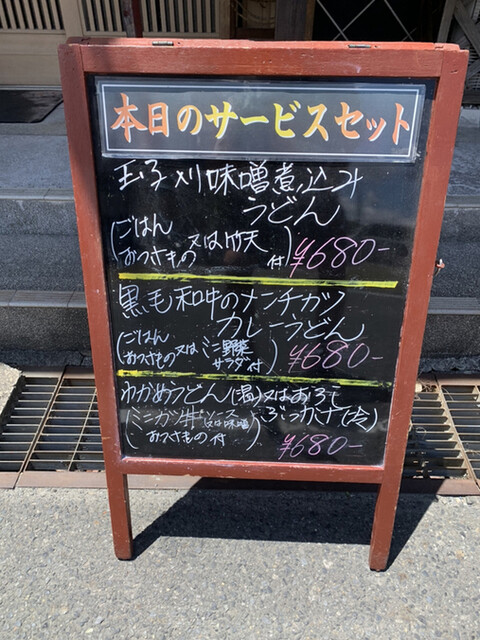 本日のサービスセット
玉子入り味噌煮込み
うどん
(ごはん
おつけもの 又は 竹天 付) ¥680-
黒毛和牛のメンチカツ
カレーうどん
(ごはん
おつけもの 又は ミニ野菜サラダ 付) ¥680-
わかめうどん(温)又はおろし
ぶっかけ(冷)
(ミニカツ丼 ソース又は味噌
おつけもの 付) ¥680-